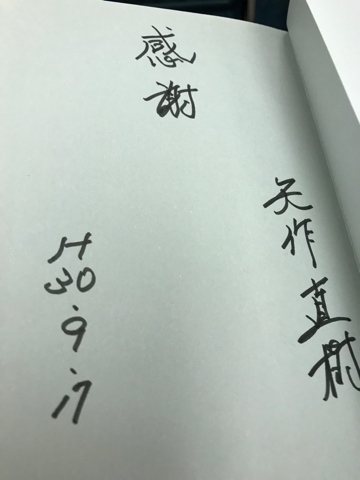 感謝
矢作直樹
H30.9.17